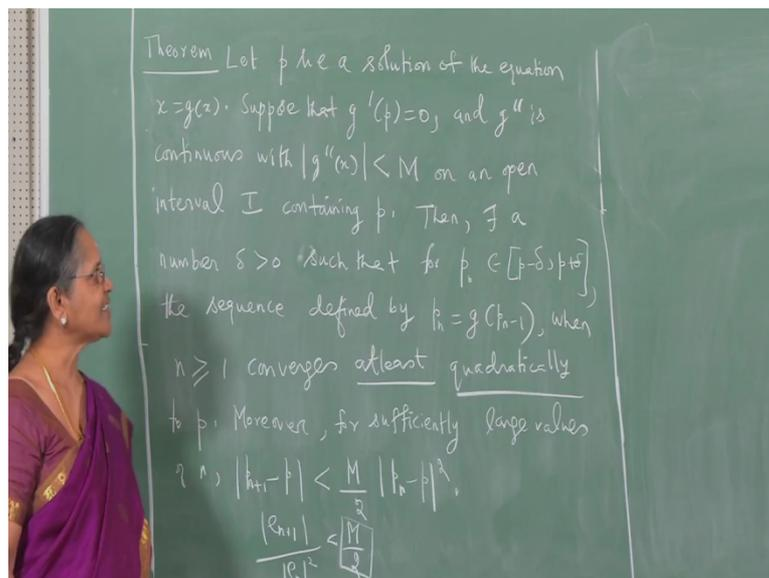 Theorem Let p be a solution of the equation
x = g(x). Suppose that g'(p)=0, and g'' is
continuous with |g''(x)| < M on an open
interval I containing p. Then, ∃ a
number δ>0 such that for p₀ ∈ [p-δ, p+δ],
the sequence defined by pₙ = g(pₙ₋₁), when
n ≥ 1 converges atleast quadratically
to p. Moreover, for sufficiently large values
of n, |pₙ₊₁-p| < M/2 |pₙ-p|².
|eₙ₊₁|/|eₙ|² < M/2